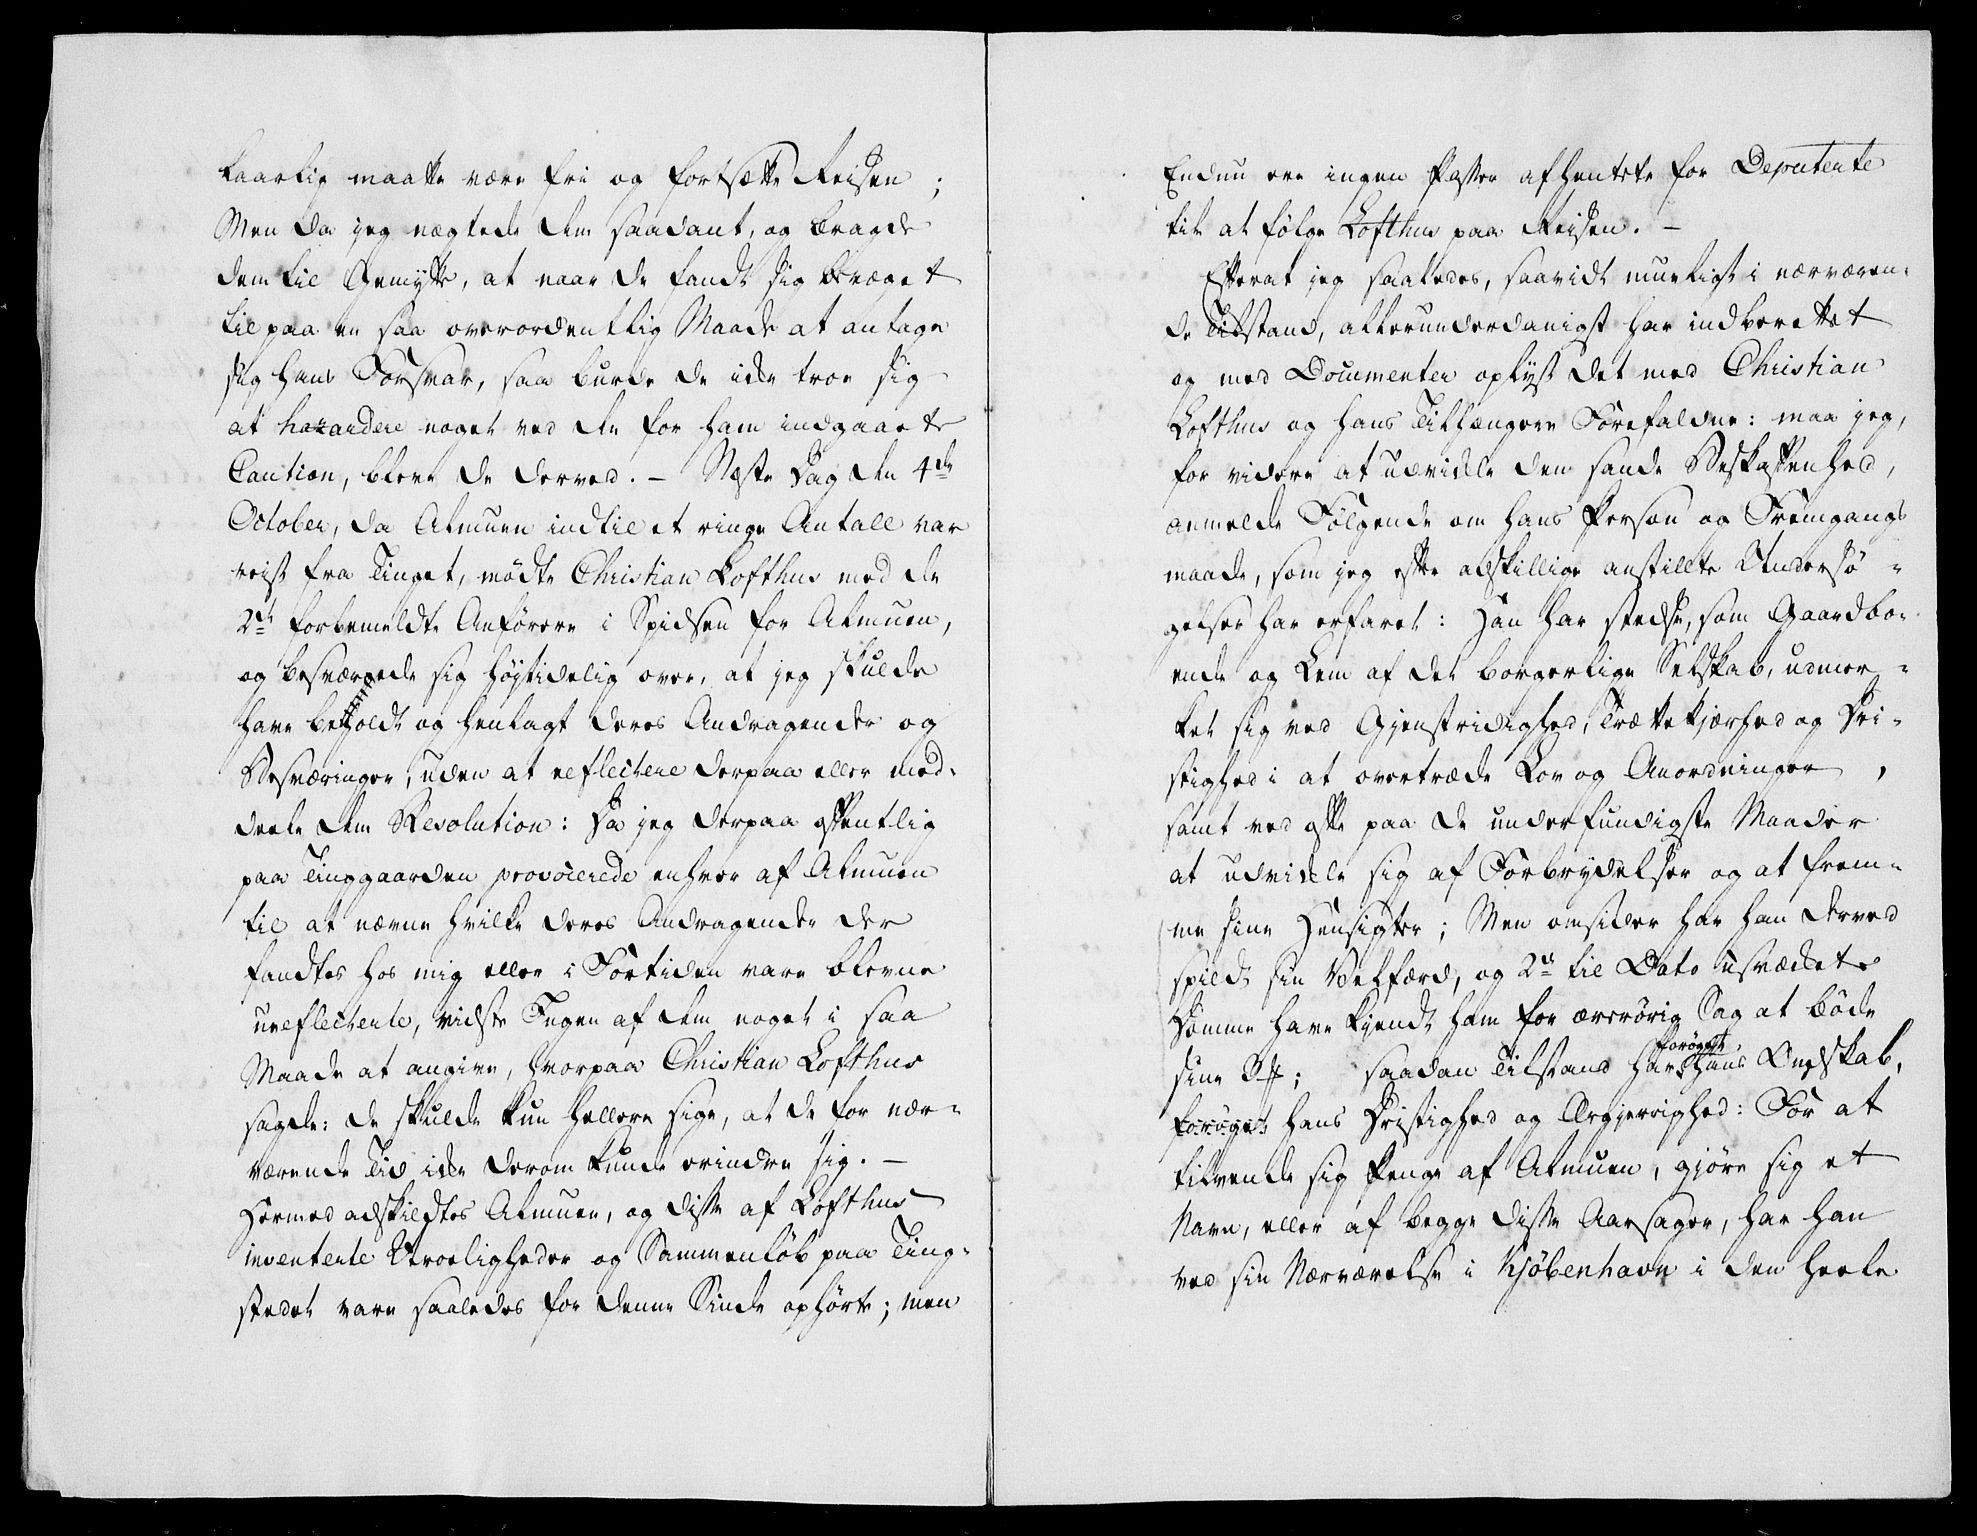 kaarlig maatte være fri og fortsætte Reisen;
Men da jeg nægtede dem saadant, og bragde
dem til Gemytte, at naar de fandt sig bevæget
til paa en saa overordentlig Maade at antage
sig hans Forsvar, saa burde de ikke troe sig
at hazardere noget ved den for ham indgaaete
Caution, bleve de derved. – Næste Dag den 4de
October, da Almuen indtil et ringe Antall var
reist fra Tinget, mødte Christian Lofthus med de
2de forbemeldte Anførere i Spidsen for Almuen,
og besværgede sig høytidelig over, at jeg skulde
have beholdt og henlagt deres Andragender og
Besværinger, uden at reflectere derpaa eller med-
deele dem Resolution: Da jeg derpaa offentlig
paa Tinggaarden provocerede enhver af Almuen
til at nævne hvilke deres Andragender der
fandtes hos mig eller i Fortiden vare blevne
ureflecterte, vidste Ingen af dem noget i saa
Maade at angive, hvorpaa Christian Lofthus
sagde: de skulde kun hellere sige, at de for nær-
værende Tid ikke derom kunde erindre sig. –
Hermed adskildtes Almuen, og disse af Lofthus
inventerte Uroeligheder og Sammenløb paa Ting-
stedet vare saaledes for denne Sinde ophørte; men
Endnu ere ingen Passer afhentete for Deputerte
til at følge Lofthus paa Reisen. –
Efterat jeg saaledes, saavidt mueligt i nærværen-
de Tilstand, allerunderdanigst har indberettet
og med Documenter oplyst det med Christian
Lofthus og hans Tilhængere Forefaldne: maa jeg,
for videre at udvikle den sande Beskaffenhed,
anmelde Følgende om hans Person og Fremgangs
maade, som jeg efter adskillige anstillte Undersø-
gelser har erfaret: Han har stedse, som Gaardbo-
ende og Lem af det borgerlige Selskab, udmer-
ket sig ved Gjenstridighed, Trættekjærhed og Dri-
stighed i at overtræde Lov og Anordninger,
samt ved ofte paa de underfundigste Maader
at udvikle sig af Forbrydelser og at frem-
me sine Hensigter; Men omsider har han derved
spildt sin Velfærd, og 2de til Dato usvækkete
Domme have kjendt ham for ærerørig Sag at bøde
sine 3 ; saadan Tilstand har forøget hans Ondskab,
forøget hans Dristighed og Ærgjerrighed: For at
tilvende sig Penge af Almuen, gjøre sig et
Navn, eller af begge disse Aarsager, har han
ved sin Nærværelse i Kjøbenhavn i den heele